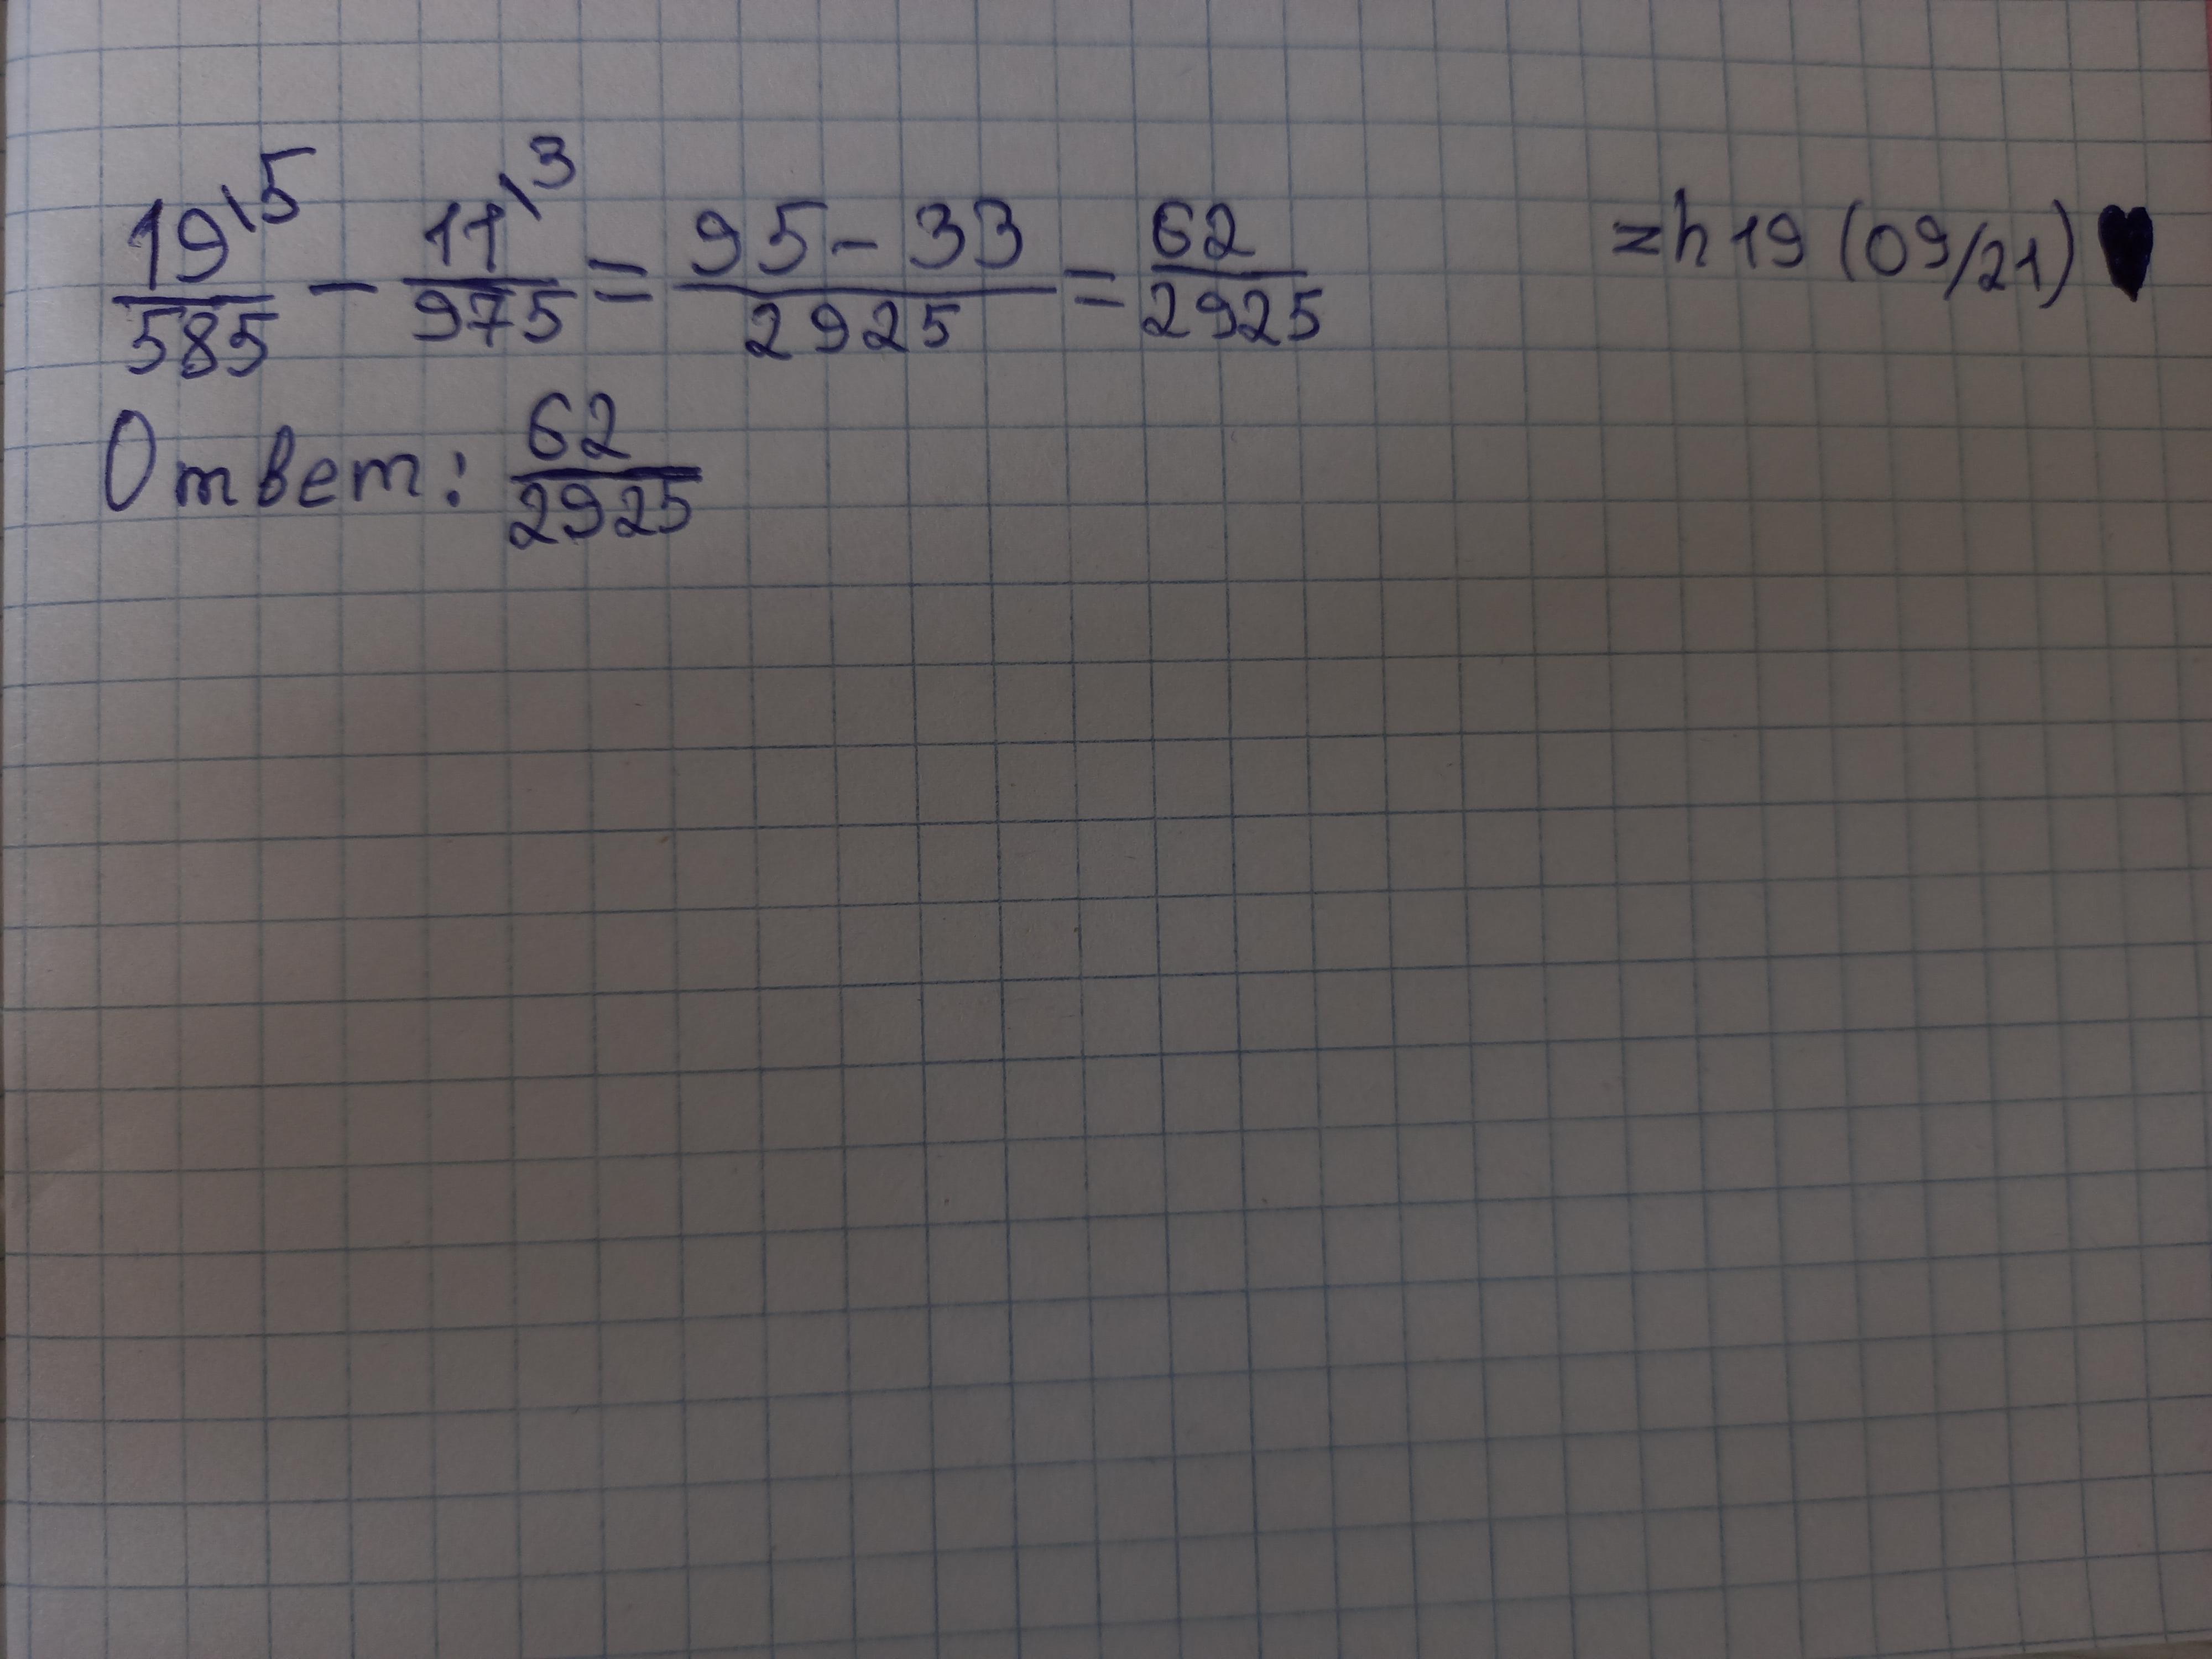 19\5/585 - 11\3/975 = 95-33/2925 = 62/2925 zh19 (09/21) ♥
Ответ: 62/2925